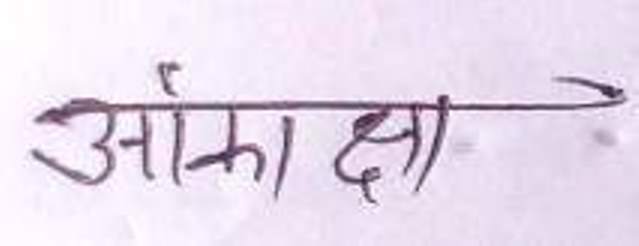 आंकाक्षा